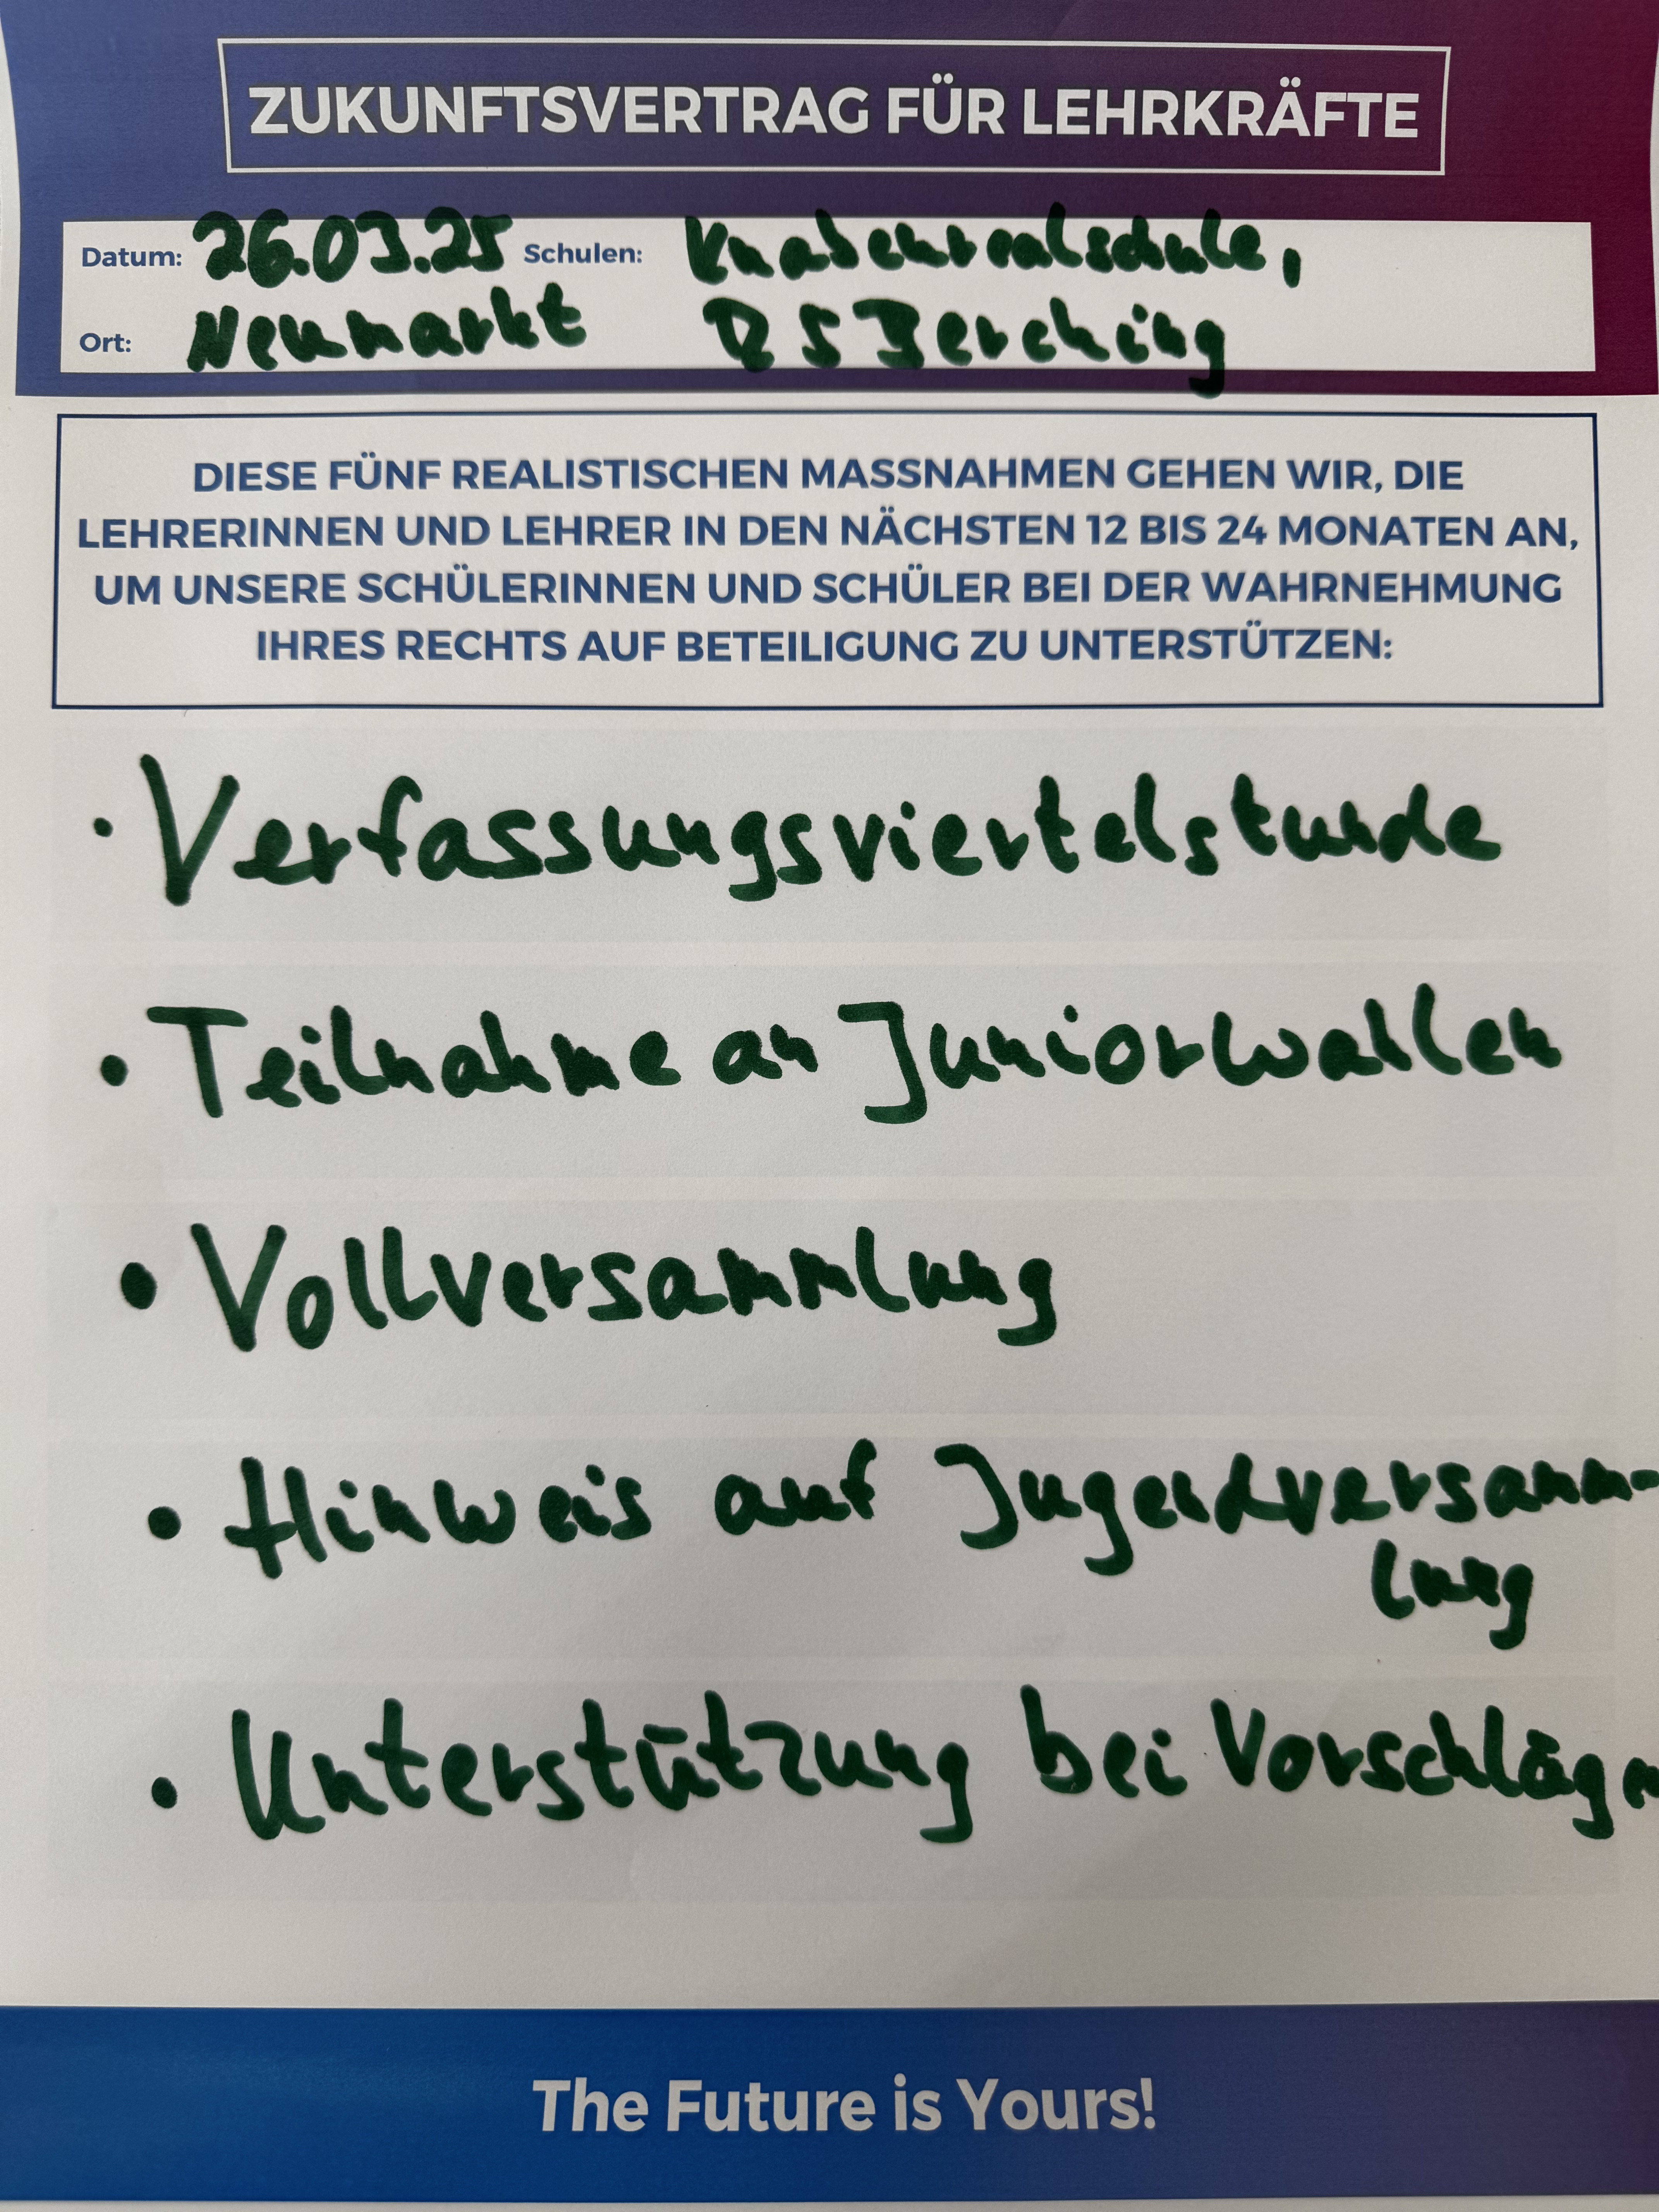 ZUKUNFTSVERTRAG FÜR LEHRKRÄFTE
Datum: 26.03.25 Schulen: Knabenrealschule,
Ort: Neumarkt RS Berching
DIESE FÜNF REALISTISCHEN MASSNAHMEN GEHEN WIR, DIE
LEHRERINNEN UND LEHRER IN DEN NÄCHSTEN 12 BIS 24 MONATEN AN,
UM UNSERE SCHÜLERINNEN UND SCHÜLER BEI DER WAHRNEHMUNG
IHRES RECHTS AUF BETEILIGUNG ZU UNTERSTÜTZEN:
• Verfassungsviertelstunde
• Teilnahme an Juniorwahlen
• Vollversammlung
• Hinweis auf Jugendversamm-
lung
• Unterstützung bei Vorschlägen
The Future is Yours!